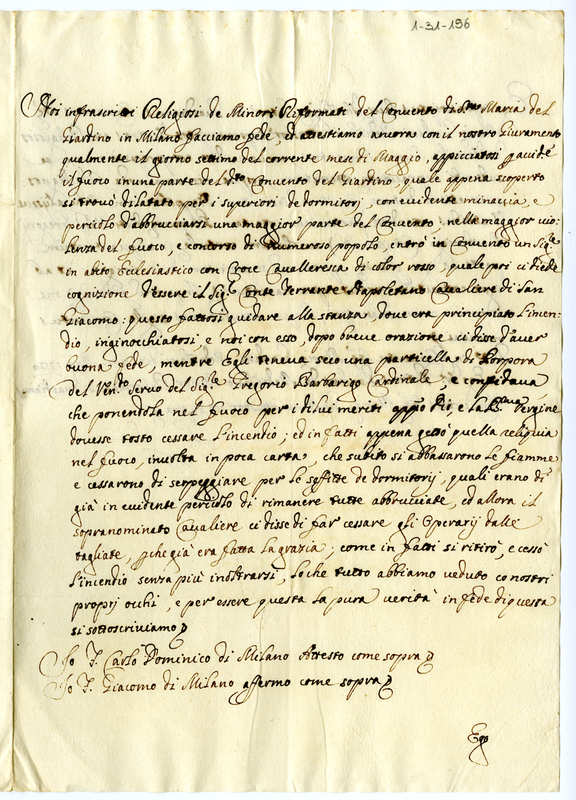 1-31-196
Noi infrascritti Religiosi de Minori Riformati del Convento di S.ta Maria del
Giardino in Milano facciamo fede, et attestiamo ancora con il nostro Giuramento
qualmente il giorno settimo del corrente mese di Maggio, appicciatosi accidẽ
il fuoco in una parte del d.to Convento del Giardino, quale appena scoperto
si trovò dilatato per i superiori de dormitorj, con evidente minaccia, e
pericolo d'abbrucciarsi una maggior parte del Convento; nella maggior vio:
lenza del fuoco, e concorso di numeroso popolo, entrò in Convento un Sig.re
in abito Eclesiastico con Croce Cavalleresca di color rosso, quale poi ci diede
cognizione d'essere il Sig.r Conte Ferrante Napoletano Cavaliere di San
Giacomo: questo fattosi guidare alla stanza, dove era principiato l'incen=
dio, inginochiatosi, e noi con esso, dopo breve orazione ci disse d'aver
buona fede, mentre Egli teneva seco una particella di Porpora
del Ven.do Servo del Sig.re Gregorio Barbarigo Cardinale, e confidava
che ponendola nel fuoco per i di lui meriti app.o Dio, e la B. Vergine
dovesse tosto cessare l'incendio; ed in fatti appena gettò quella reliquia
nel fuoco, involta in poca carta, che subito si abbassarono le fiamme
e cessarono di serpeggiare per le soffitte de dormitorj, quali erano di
già in evidente pericolo di rimanere tutte abbrucciate, ed allora il
sopranominato Cavaliere ci disse di far cessare gli Operarij dalle
tagliate, perche già era fatta la grazia; come in fatti si ritirò, e cessò
l'incendio senza più inoltrarsi, lo che tutto abbiamo veduto co nostri
proprij occhi, e per essere questa la pura verità in fede di questa
si sottoscriviamo
Io F. Carlo Dominico di Milano Attesto come sopra
Io F. Giacomo di Milano affermo come sopra
Ego